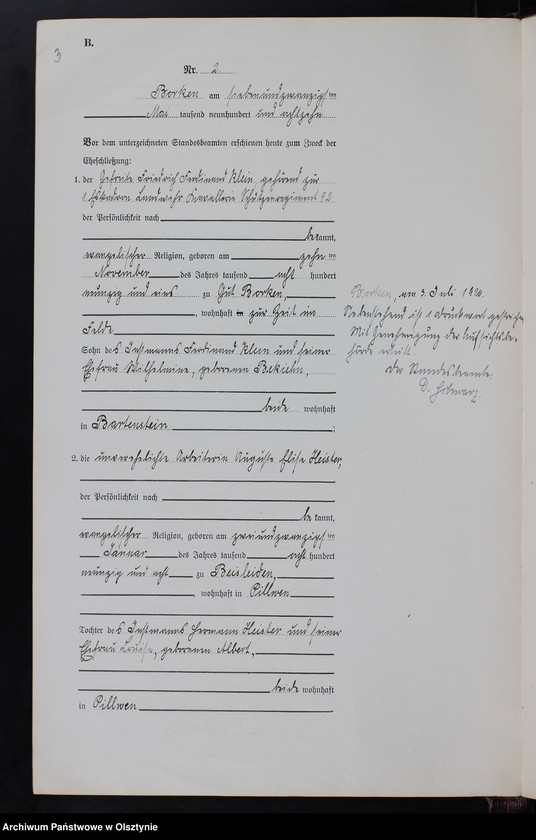 3
B.
Nr. 2.
Borken am siebenundzwanzigsten
Mai tausend neunhundert und achtzehn
Vor dem unterzeichneten Standesbeamten erschienen heute zum Zweck der
Eheschließung:
1. der Gefreite Friedrich Ferdinand Klein gehörend zur
1 Eskadron Landwehr Kavallerie Schützenregiment 92
der Persönlichkeit nach
bekannt,
evangelischer Religion, geboren am zehnten
November des Jahres tausend acht hundert
neunzig und eins zu Gut Borken,
, wohnhaft in zur Zeit im
Felde
Sohn des Instmanns Ferdinand Klein und seiner
Ehefrau Wilhelmine, geborenen
beide wohnhaft
in Bartenstein ;
2. die unverehelichte Arbeiterin Auguste Elise Heister,
der Persönlichkeit nach
bekannt,
evangelischer Religion, geboren am zweiundzwanzigsten
Januar des Jahres tausend acht hundert
neunzig und acht zu Beisleiden,
, wohnhaft in Pillwen
Tochter des Instmanns Hermann Heister und seiner
Ehefrau Louise, geborenen Albert,
beide wohnhaft
in Pillwen
Borken, am 3. Juli 1920.
Nebenstehend ist 1 Druckwort gestrichen
Mit Genehmigung der Aufsichtsbe-
hörde erteilt.
Der Standesbeamte.
Archiwum Państwowe w Olsztynie